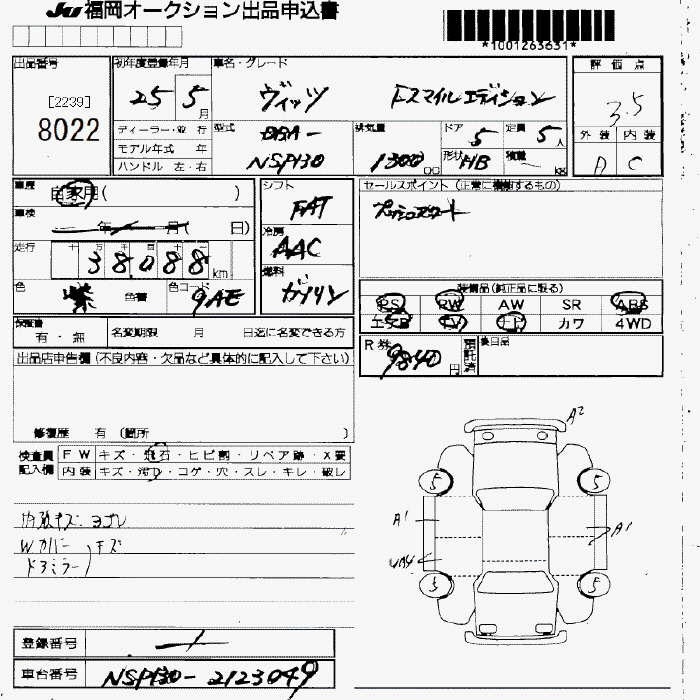 JU 福岡オークション出品申込書
*1001263631*
出品番号 初年度登録年月 車名・グレード 評価点
[2239]
8022
25 5月 ヴィッツ Fスマイルエディション 3.5
ディーラー・並行 型式 DBA- 排気量 ドア 5 定員 5人 外装 内装
モデル年式 年
ハンドル 左・右 NSP130 1300cc 形状 HB 積載 kg A C
車歴 自家用( ) シフト FAT セールスポイント (正常に機能するもの)
車検 年 月 日) 冷房 AAC プッシュスタート
走行 十 万 千 百 十 38,088km
燃料 ガソリン
色 紫 色替 色コード 9AE
装備品(純正品に限る)
PS PW AW SR ABS
エアB TV ナビ カワ 4WD
保証書 有・無 名変期限 月 日迄に名変できる方
R券 9840円 預託済 後日品
出品店申告欄(不良内容・欠品など具体的に記入して下さい)
修復歴 有 (箇所 )
検査員 FW キズ・飛石・ヒビ割・リペア跡・X要
記入欄 内装 キズ・汚れ・コゲ・穴・スレ・キレ・破レ
内張キズ ヨゴレ
Wカバー キズ
ドアミラー
A2
5 5
A1 A1
UA4
5 5
登録番号
車台番号 NSP130-2123049